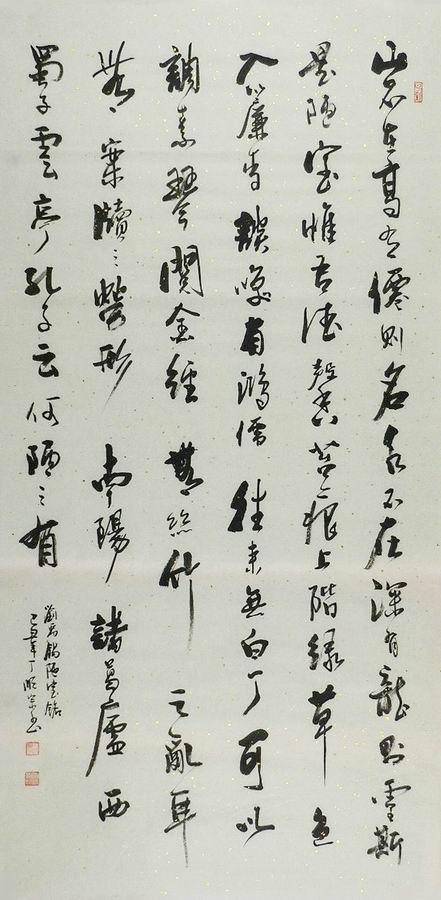 山不在高有僊則名水不在深有龍則靈斯
是陋室惟吾德馨苔痕上階綠草色
入簾青談笑有鴻儒往來無白丁可以
調素琴閱金經無絲竹之亂耳
無案牘之勞形南陽諸葛廬西
蜀子雲亭孔子云何陋之有
劉禹錫陋室銘
己丑年丁書